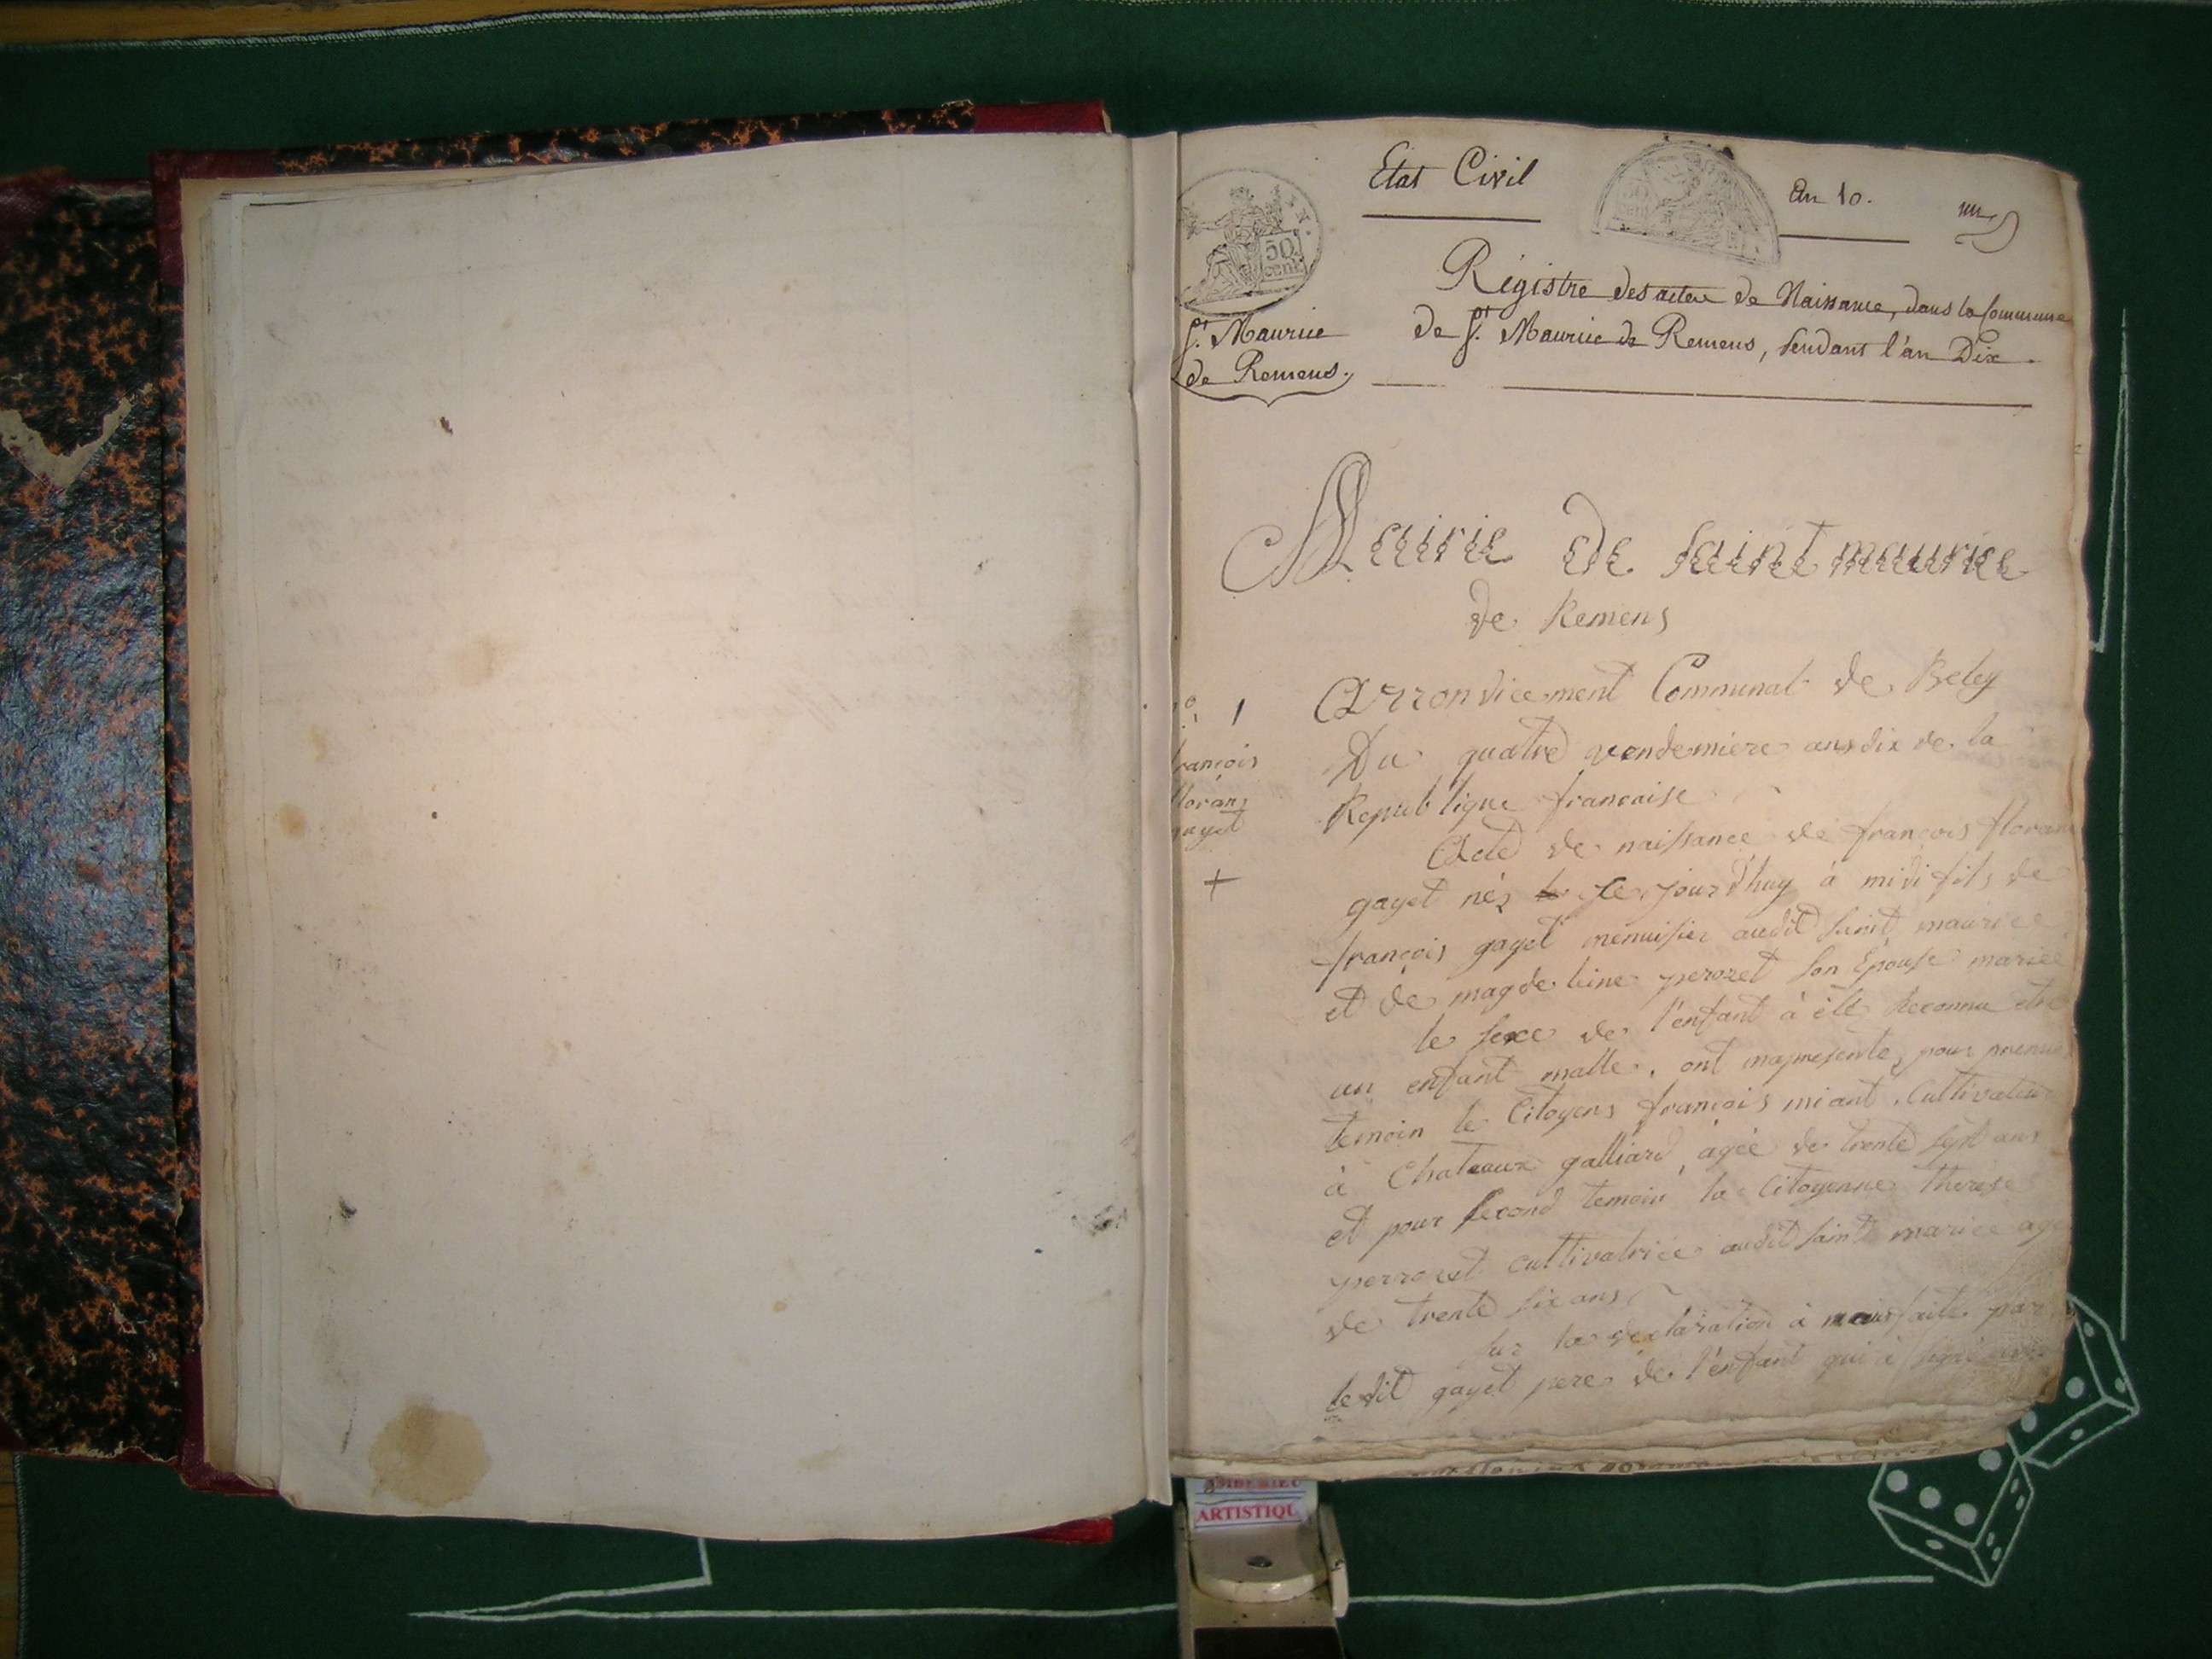 Etat Civil
An 10.
50
cent.
St. Maurice
de Remens.
Régistre des actes de Naissance, dans la Commune
de St. Maurice de Remens, pendant l'an Dix.
Mairie de Saint maurice
de Remens
Arrondicement Communal de Beley
n.o 1
Du quatre vendemiere ans dix de la
Republique francaise
françois
floran
gayet
+
Acte de naissance de françois floran
gayet néz ce jourd'huy à midi fils de
françois gayet menuisier audit saint maurice
et de magdeleine perozet son Épouse mariée
le sexe de l'enfant à été Reconnu etre
un enfant malle. ont mapresenté pour premier
temoin le Citoyens françois miant. Cultivateur
à Chateaux galliard, agée de trente sept ans
et pour second temoin la Citoyenne therese
perrozet cultivatrice audit saint marice agé
de trente six ans
sur la declaration à mois faite par
le dit gayet pere de l'enfant qui à signé avec
ARTISTIQU